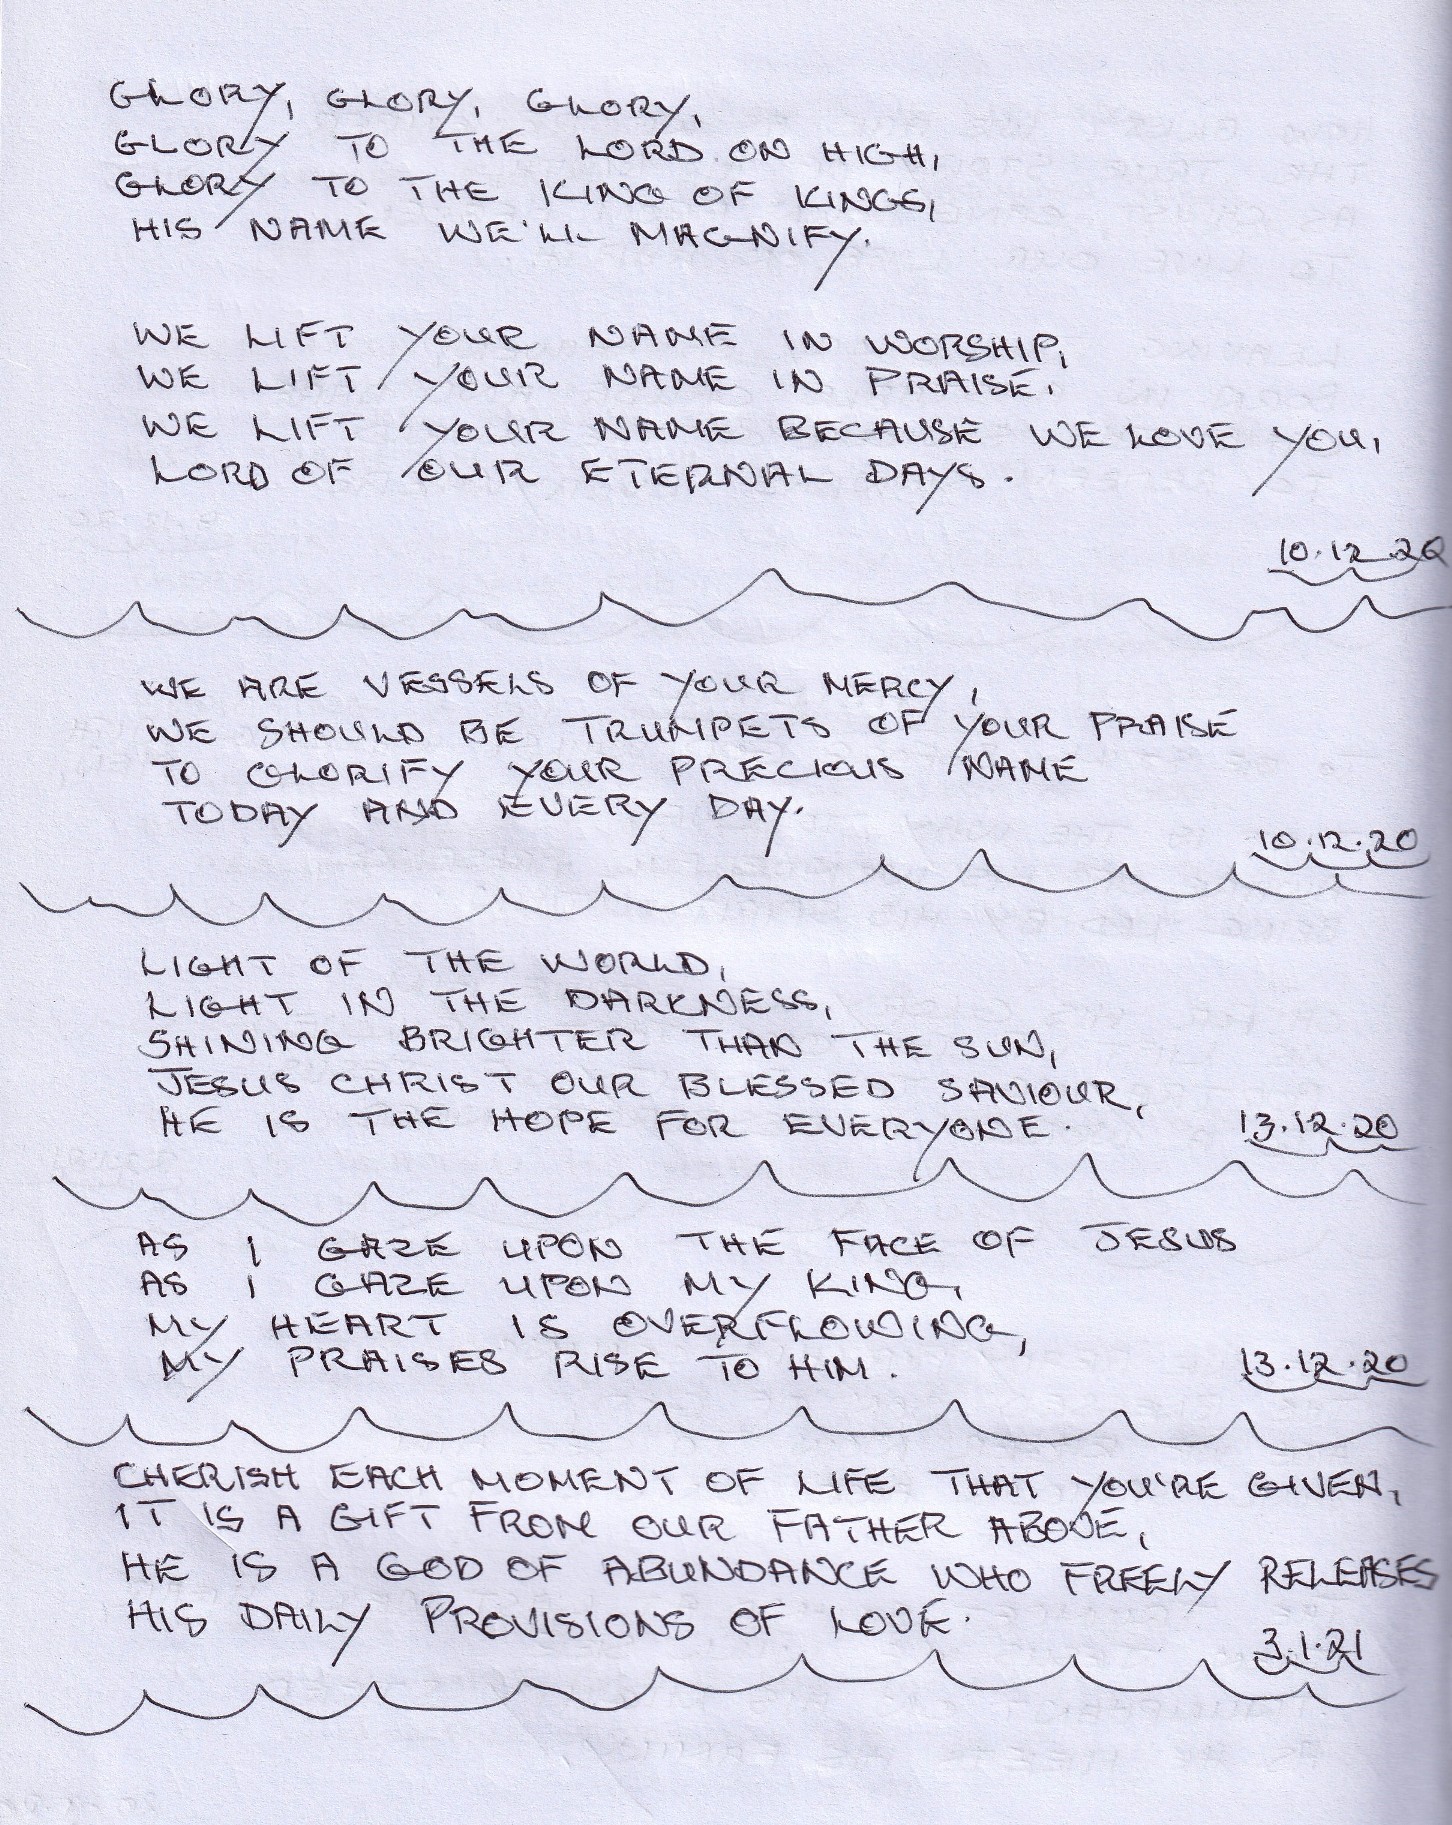 GLORY, GLORY, GLORY,
GLORY TO THE LORD ON HIGH,
GLORY TO THE KING OF KINGS,
HIS NAME WE'LL MAGNIFY.
WE LIFT YOUR NAME IN WORSHIP,
WE LIFT YOUR NAME IN PRAISE,
WE LIFT YOUR NAME BECAUSE WE LOVE YOU,
LORD OF OUR ETERNAL DAYS.
10.12.20
WE ARE VESSELS OF YOUR MERCY,
WE SHOULD BE TRUMPETS OF YOUR PRAISE
TO GLORIFY YOUR PRECIOUS NAME
TODAY AND EVERY DAY.
10.12.20
LIGHT OF THE WORLD,
LIGHT IN THE DARKNESS,
SHINING BRIGHTER THAN THE SUN,
JESUS CHRIST OUR BLESSED SAVIOUR,
HE IS THE HOPE FOR EVERYONE.
13.12.20
AS I GAZE UPON THE FACE OF JESUS
AS I GAZE UPON MY KING,
MY HEART IS OVERFLOWING,
MY PRAISES RISE TO HIM.
13.12.20
CHERISH EACH MOMENT OF LIFE THAT YOU'RE GIVEN,
IT IS A GIFT FROM OUR FATHER ABOVE,
HE IS A GOD OF ABUNDANCE WHO FREELY RELEASES
HIS DAILY PROVISIONS OF LOVE.
3.1.21